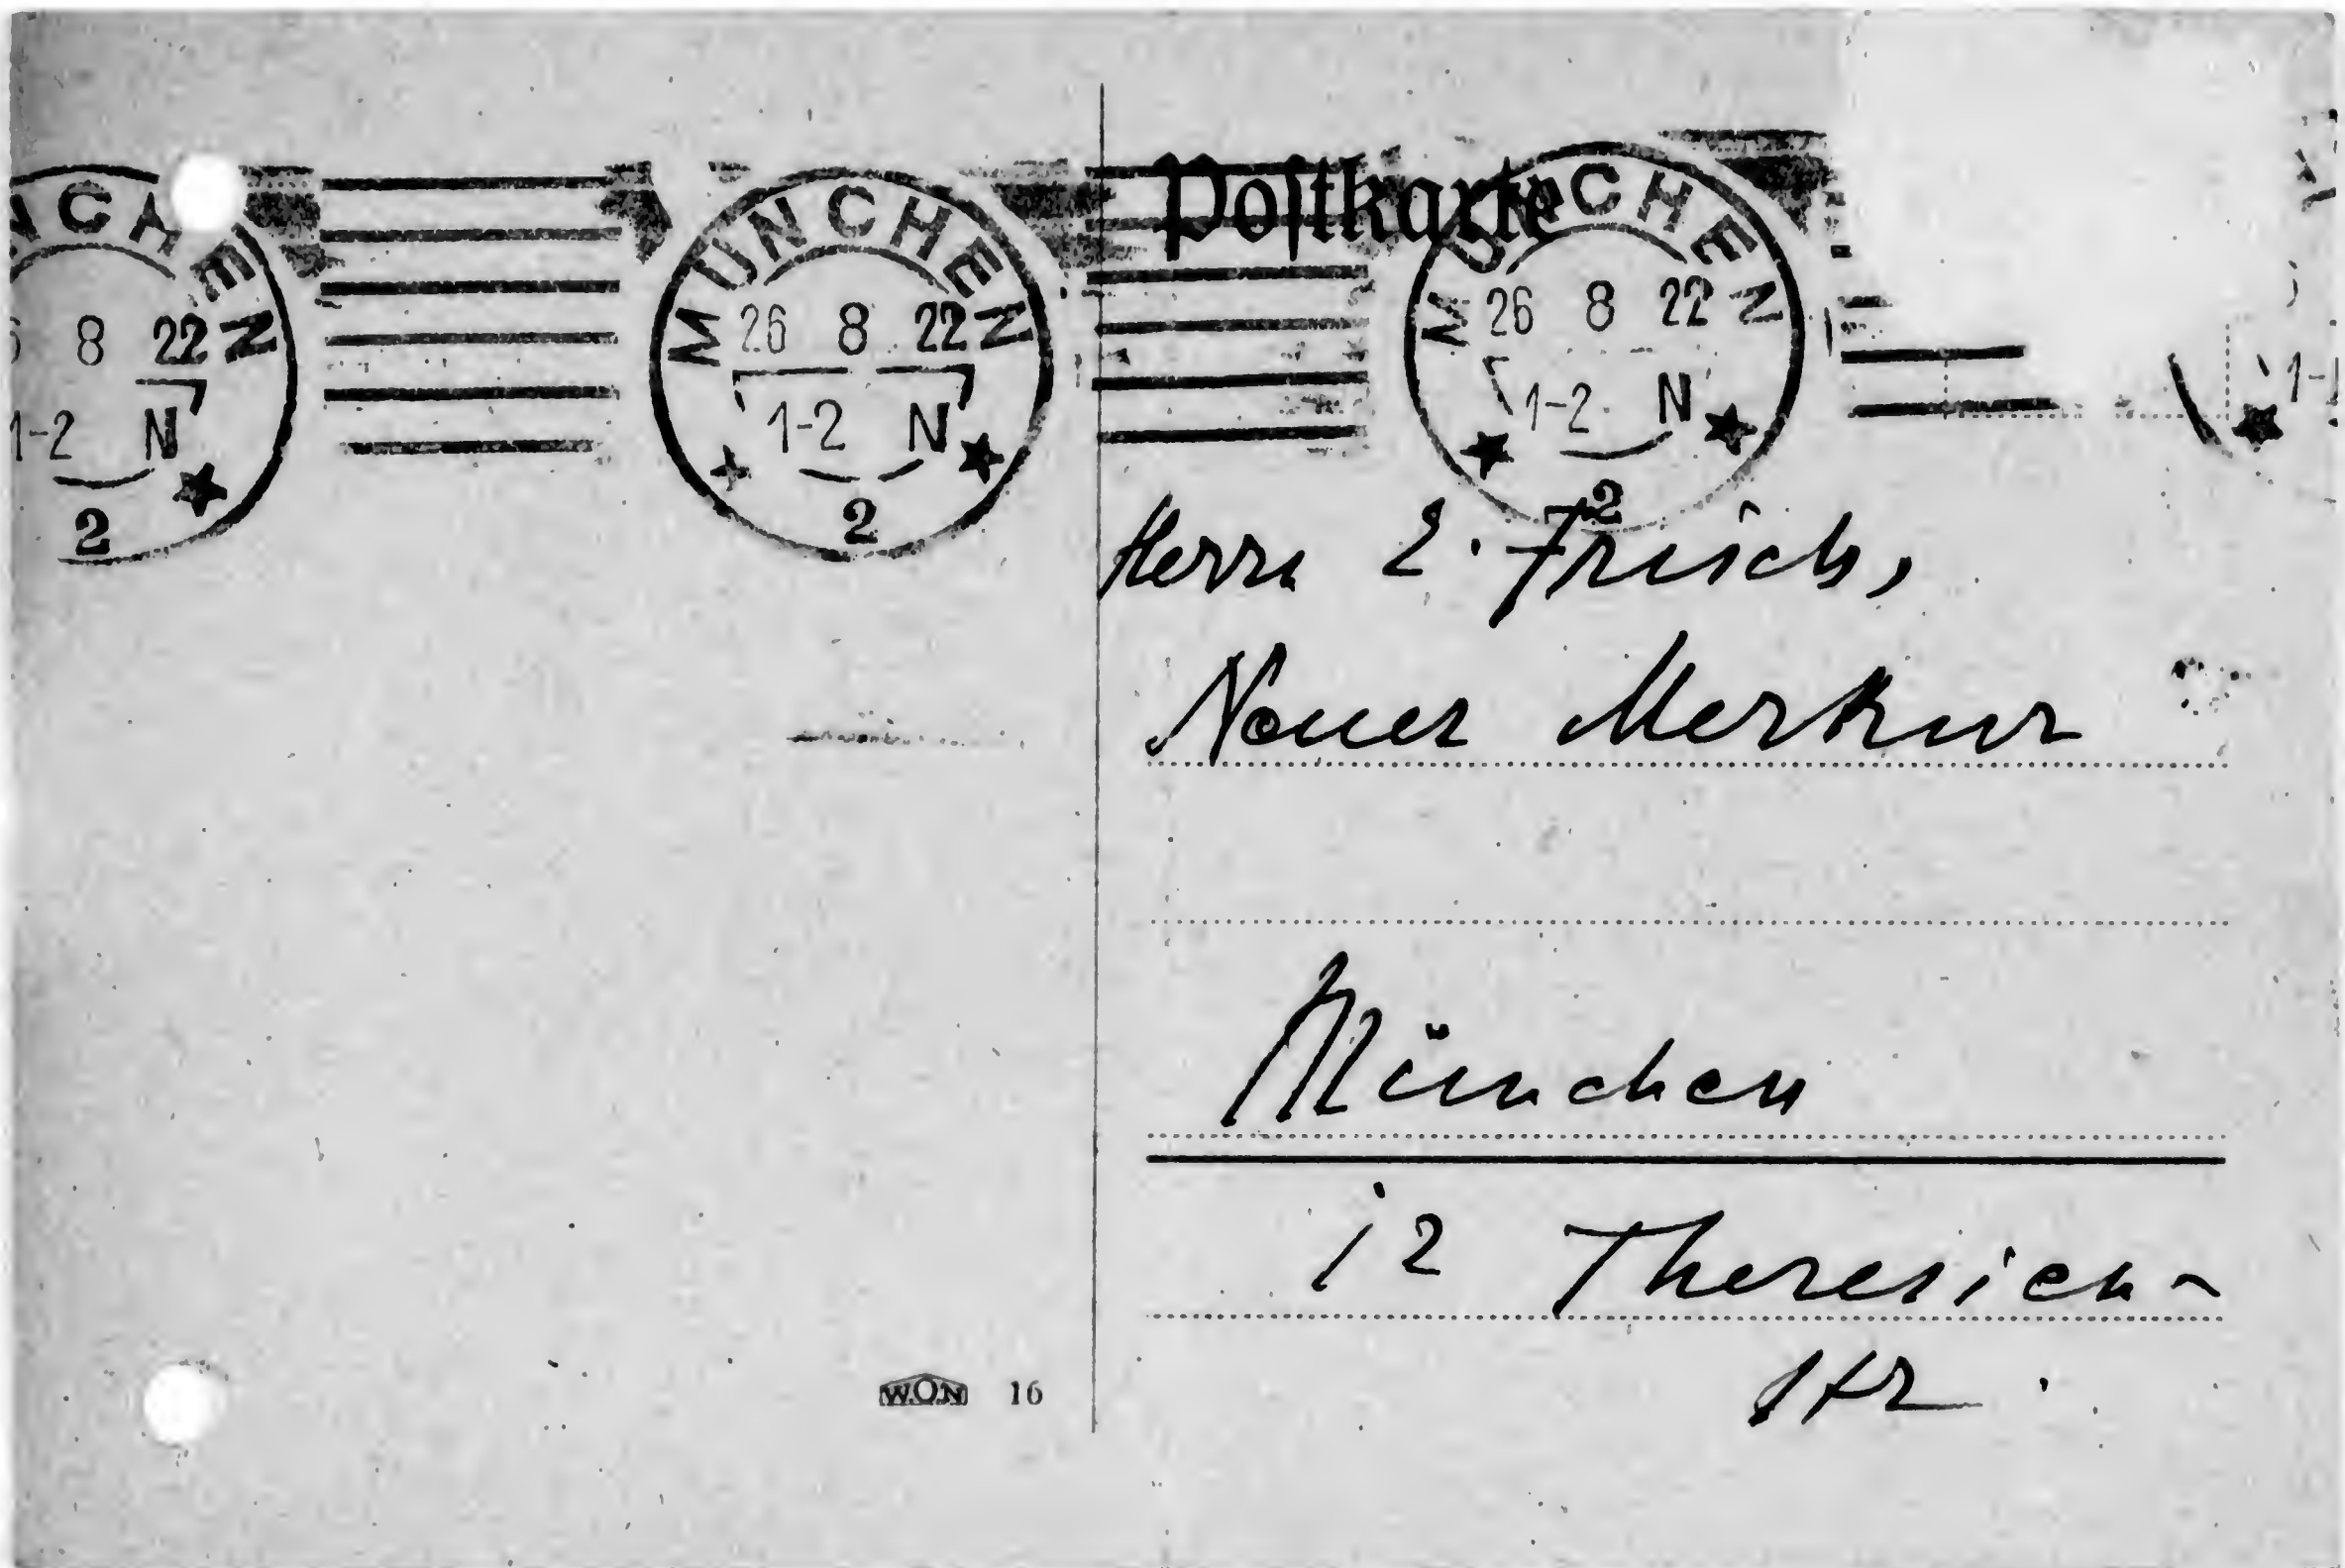 MÜNCHEN
8 22
1-2 N
2
MÜNCHEN
26 8 22
1-2 N
2
Postkarte
MÜNCHEN
26 8 22
1-2 N
2
Herrn E. Frisch,
Neuer Merkur
München
12 Theresien-
str.
W.O.N 16